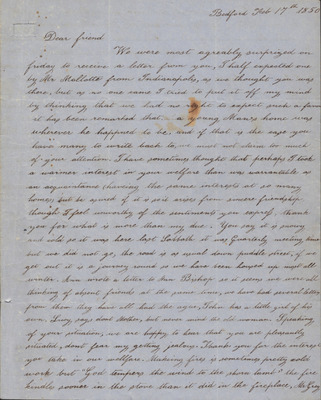 Bedford Feb 17th 1850
Dear friend
We were most agreably surprised on
friday to receive a letter from you, I half expected one
by Mr Mallotts from Indianapolis, as we thought you was
there, but as no one came I tried to put it off my mind
by thinking that we had no right to expect such a favor
it has been remarked that a young Man's home was
wherever he happened to be, and if that is the case you
have many to write back to, we must not claim too much
of your attention. I have sometimes thought that perhaps I took
a warmer interest in your welfare than was warrantable as
an acquaintance (having the same interests at so many
homes, but be assured if it is so it arises from sincere friendship
though I feel unworthy of the sentiments you express, thank
you for what is more than my due. You say it is snowy
and cold so it was here last Sabbath it was Quarterly meeting here
but we did not go, the road is as usual down puddle street, if we
get out it is a journey round so we have been housed up most all
winter. Ann wrote a letter to Ann Bishop so it seems we were all
thinking of absent friends at the same time, we have had several letters
from them they have all had the ague, John has a little girl of his
own. Lucy says some better, but now such an old woman. Speaking
of your situation, we are happy to hear that you are pleasantly
situated, dont fear my getting jealous. Thank you for the interest
you take in our wellfare. Making fires is sometimes pretty cold
work but "God tempers the wind to the shorn lamb" the fire
kindles sooner in the stove than it did in the fireplace, Mr Gray